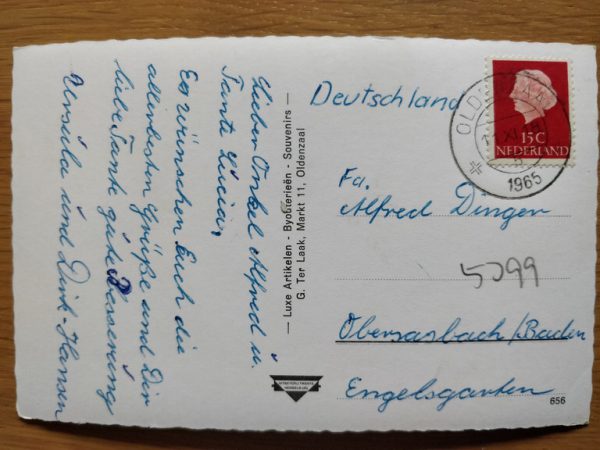 Lieber Onkel Alfred u.
Tante Lucia,
Es wünschen Euch die
allerbesten Grüße und Dir
liebe Tante gute Besserung
Ursula und Dirk-Hansen
— Luxe Artikelen - Byouterieën - Souvenirs —
G. Ter Laak, Markt 11, Oldenzaal
Deutschland
15C
NEDERLAND
1965
Fa.
Alfred Dinger
5099
Obersasbach/Baden
Engelsgarten
656